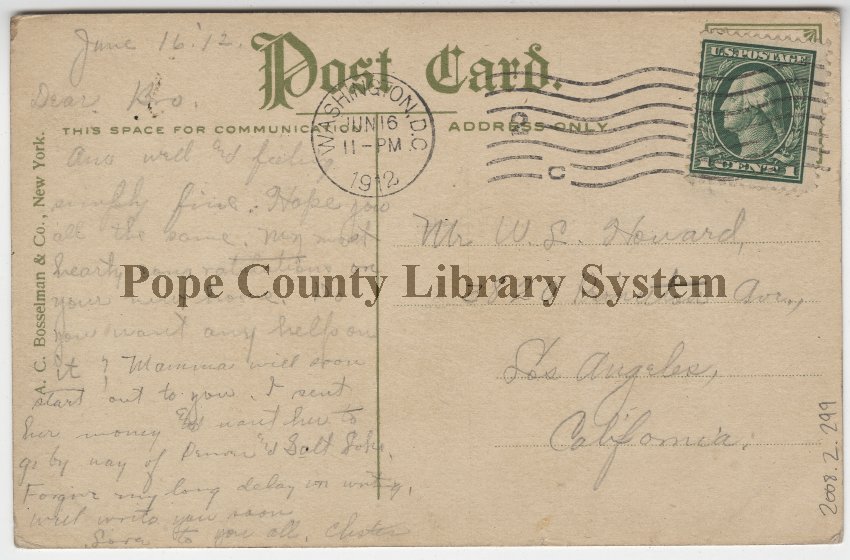 June 16 '12.
Post Card.
Dear Bro.
THIS SPACE FOR COMMUNICATION
ADDRESS ONLY
WASHINGTON, D.C.
JUN 16
11-PM
1912
C
U.S. POSTAGE
1 CENT 1
A. C. Bosselman & Co., New York.
Am well & feeling
simply fine. Hope you
all the same. My most
hearty congratulations on
your new
you want any help on
it? Mamma will soon
start out to you. I sent
her money & want her to
go by way of Denver & Salt Lake.
Forgive my long delay in writing,
will write you soon
Love to you all. Chester
Mr. W. L. Howard,
Ave.,
Los Angeles,
California.
Pope County Library System
2008.2.299